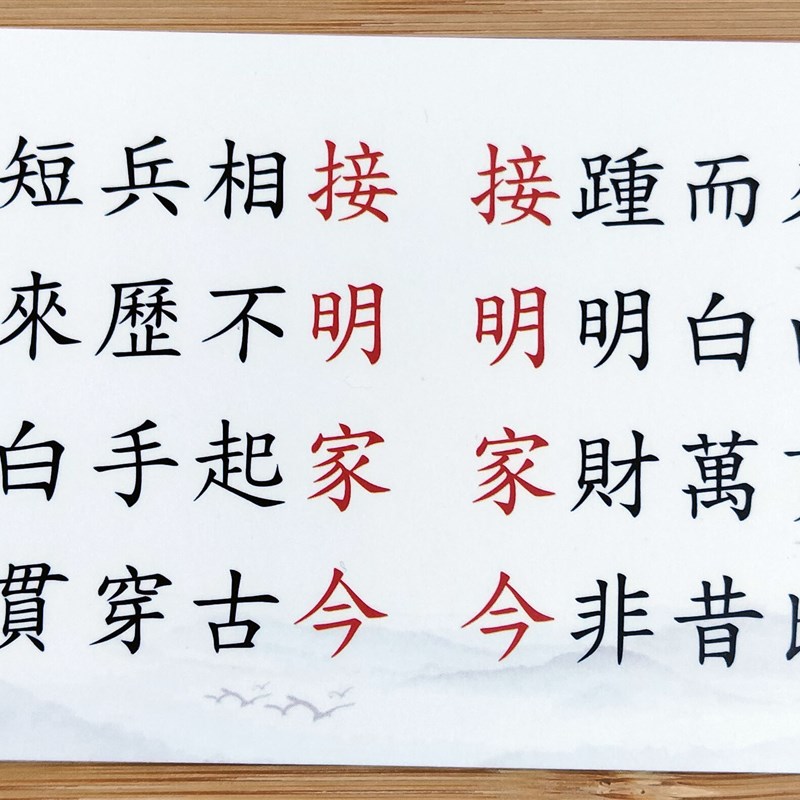 短兵相接 接踵而
來歷不明 明明白
白手起家 家財萬
貫穿古今 今非昔